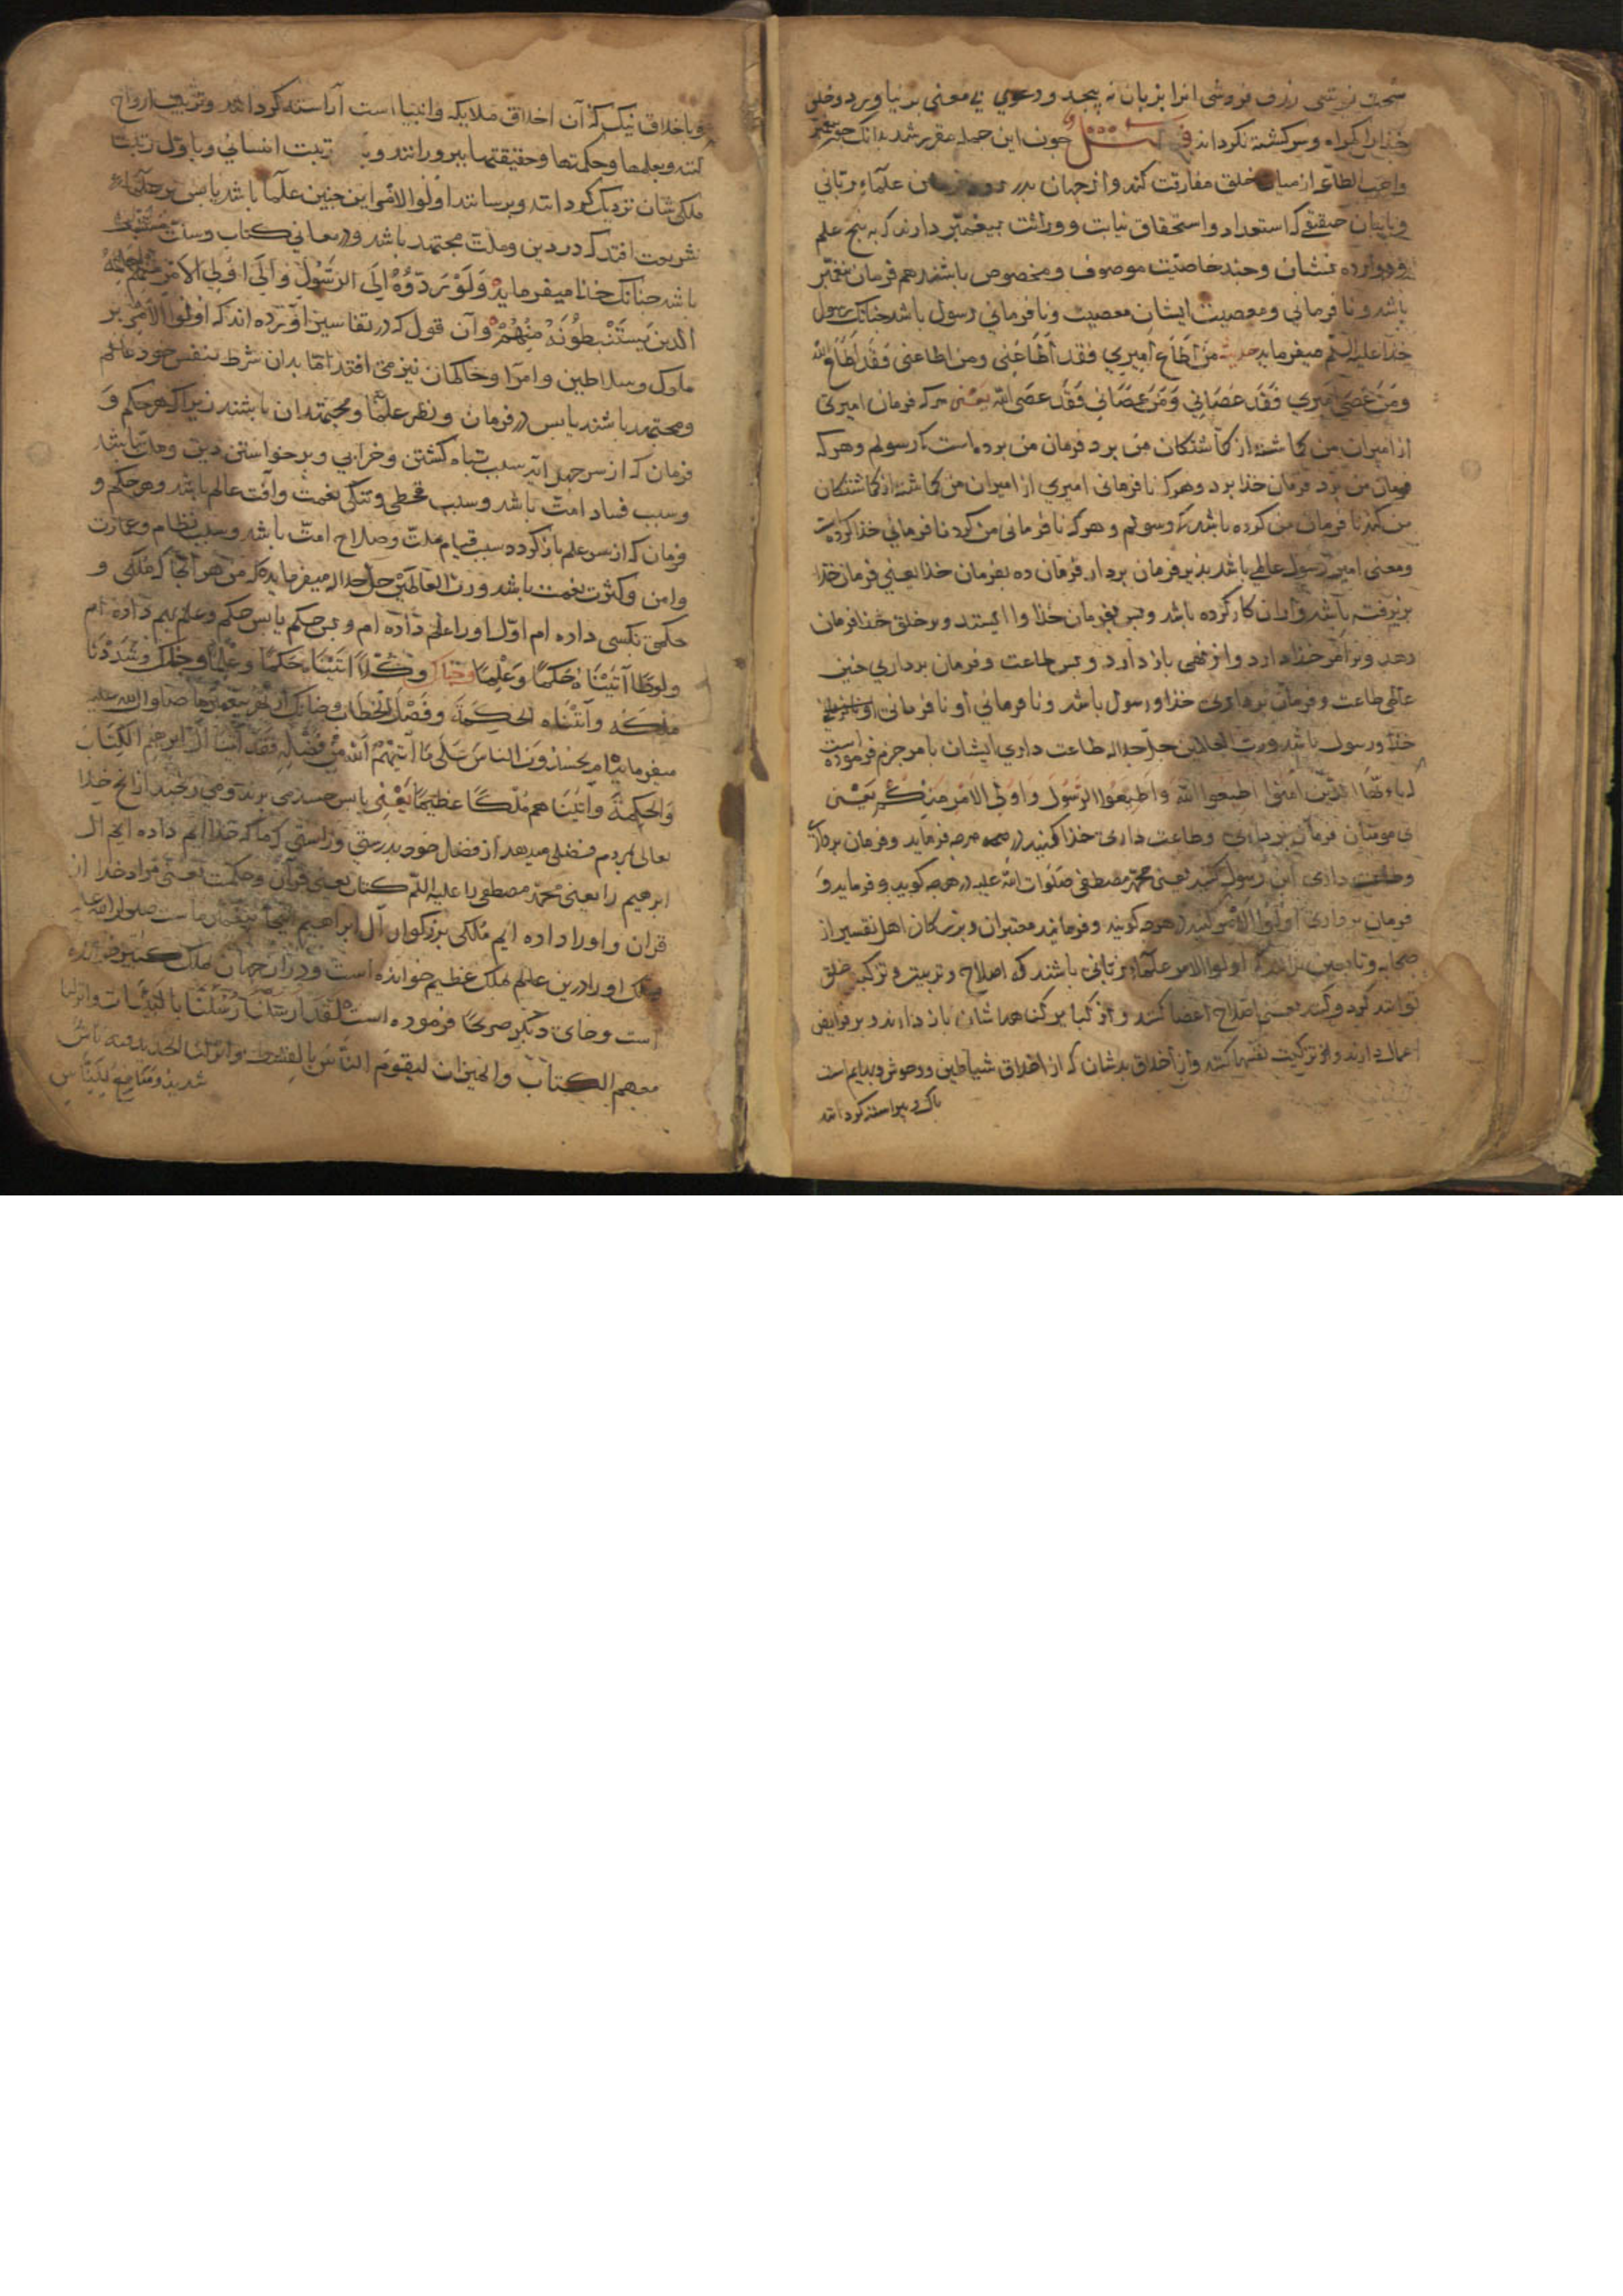 فروشی انرا بزبان نه پیجد و دعوی بی معنی بر نیاورد و خلق
خذا را کمراه و سرکشته نکرداند چون این جمله مقرر شد بدانک چون پیغمبر
واجب الطاعه از میان خلق مفارقت کند و از جهان علماء ربانی
که استعداد و استحقاق نیابت و وراثت پیغمبر دارند که به پنج علم
و دوازده نشان و چند خاصیت موصوف و مخصوص باشند هم فرمان پیغمبر
باشد و نا فرمانی و معصیت ایشان معصیت و نا فرمانی رسول باشد چنانک رسول
خذا علیه السلم میفرماید حدیث من اطاع امیری فقد اطاعنی ومن اطاعنی فقد اطاع الله
ومن عصی امیری فقد عصانی ومن عصانی فقد عصی الله یعنی هرکه فرمان امیری
از امیران من کماشته از کماشتکان من برد فرمان من برده است که رسولم و هرکه
فرمان من برد فرمان خذا برد و هرکه نا فرمانی امیری از امیران من کماشته از کماشتکان
من کند نا فرمان من کرده باشد که رسولم و هرکه نا فرمانی من کرد نا فرمانی خذا کرده است
ومعنی امیر رسول عالمی باشد بذیر فرمان بردار فرمان ده بفرمان خذا یعنی فرمان خذا
بزیرفته باشد و بران کار کرده باشد و بس بفرمان خذا وا ایستد و بر خلق خذا فرمان
دهد و بر امر خذا دارد و از نهی باز دارد و بس طاعت و فرمان برداری چنین
عالمی طاعت و فرمان برداری خذا و رسول باشد و نا فرمانی او نا فرمانی
خذا و رسول باشد و رب العالمین جل جلاله طاعت داری ایشان بامر جزم فرموده است
یاءیها الذین امنوا اطیعوا الله واطیعوا الرسول واولی الامر منکم یعنی
ای مومنان فرمان برداری و طاعت داری خذا کنید در همه هرچه فرماید و فرمان برداری
و طاعت داری این رسول کنید یعنی محمد مصطفی صلوات الله علیه در هرچه کوید و فرماید و
فرمان برداری اولوا الامر کنید در هرچه کویند و فرمایند معتبران و بزرکان اهل تفسیر از
صحابه و تابعین برانند که اولوا الامر علماء ربانی باشند که اصلاح و تربیت و تزکیه خلق
توانند کرد و کنند یعنی اصلاح اعضا کنند و از کبایر کناهها شان باز دارند و بر فرایض
اعمال دارند و از تزکیت نفسها کنند و از اخلاق بدشان که از اخلاق شیاطین و وحوش و بهایم است
پاک و پیراسته کردانند
و باخلاق نیک که آن اخلاق ملایکه و انبیا است آراسته کردانند و تربیت ارواح
کنند و بعلمها و حکمتها و حقیقتها بپرورانند و بـ تربت انسانی و باول رتبت
ملکی شان نزدیک کردانند و برسانند اولوا الامر این چنین علما باشد یا بس بر علماء
شریعت افتد که در دین و ملت مجتهد باشد و در معانی کتاب و سنت
باشد چنانک خذا میفرماید ولو ردوه الی الرسول والی اولی الامر منهم لعلمه
الذین یستنبطونه منهم و آن قول که در تفاسیر آورده اند که اولوا الامر بر
ملوک و سلاطین و امرا و حاکمان نیز می افتد اما بدان شرط بنفس خود عالم
و مجتهد باشند یا بس در فرمان و نظر علما و مجتهدان باشند زیرا که هر حکم و
فرمان که از سر جهل آید سبب تباه کشتن و خرابی و برخواستن دین و ملت باشد
و سبب فساد امت باشد و سبب قحطی و تنکی نعمت و آفت عالم باشد و هر حکم و
فرمان که از سر علم باز کرده سبب قیام ملت و صلاح امت باشد و سبب نظام و عمارت
و امن و کثرت نعمت باشد و رب العالمین جل جلاله میفرماید که من هر آنجا که ملکی و
حکمی بکسی داده ام اول او را علم داده ام و بس حکم یا بس حکم و علم بهم داده ام
ولوطا آتیناه حکما وعلما وکلا اتینا حکما وعلما وشددنا
ملکه وآتیناه الحکمة وفصل الخطاب صلوات الله علیه
میفرماید ام یحسدون الناس علی ما آتیهم الله من فضله فقد آتینا آل ابرهیم الکتاب
والحکمة وآتیناهم ملکا عظیما یعنی یا بس حسد می برند و می رنجند ازانچ خذا
تعالی بمردم فضلی میدهد از فضل خود بدرستی و راستی که ما که خذا ایم داده ایم آل
ابرهیم را یعنی محمد مصطفی را علیه السلم کتاب یعنی قرآن و حکمت یعنی مراد خدا از
قران و او را داده ایم ملکی بزرکوار آل ابراهیم اینجا پیغمبر ماست صلوات الله علیه
ملک او را درین عالم ملک عظیم خوانده است و در آن جهان ملک کبیر خوانده
است و جای دیکر صریحا فرموده است لقد ارسلنا رسلنا بالبینات وانزلنا
معهم الکتاب والمیزان لیقوم الناس بالقسط وانزلنا الحدید فیه باس
شدید ومنافع للناس